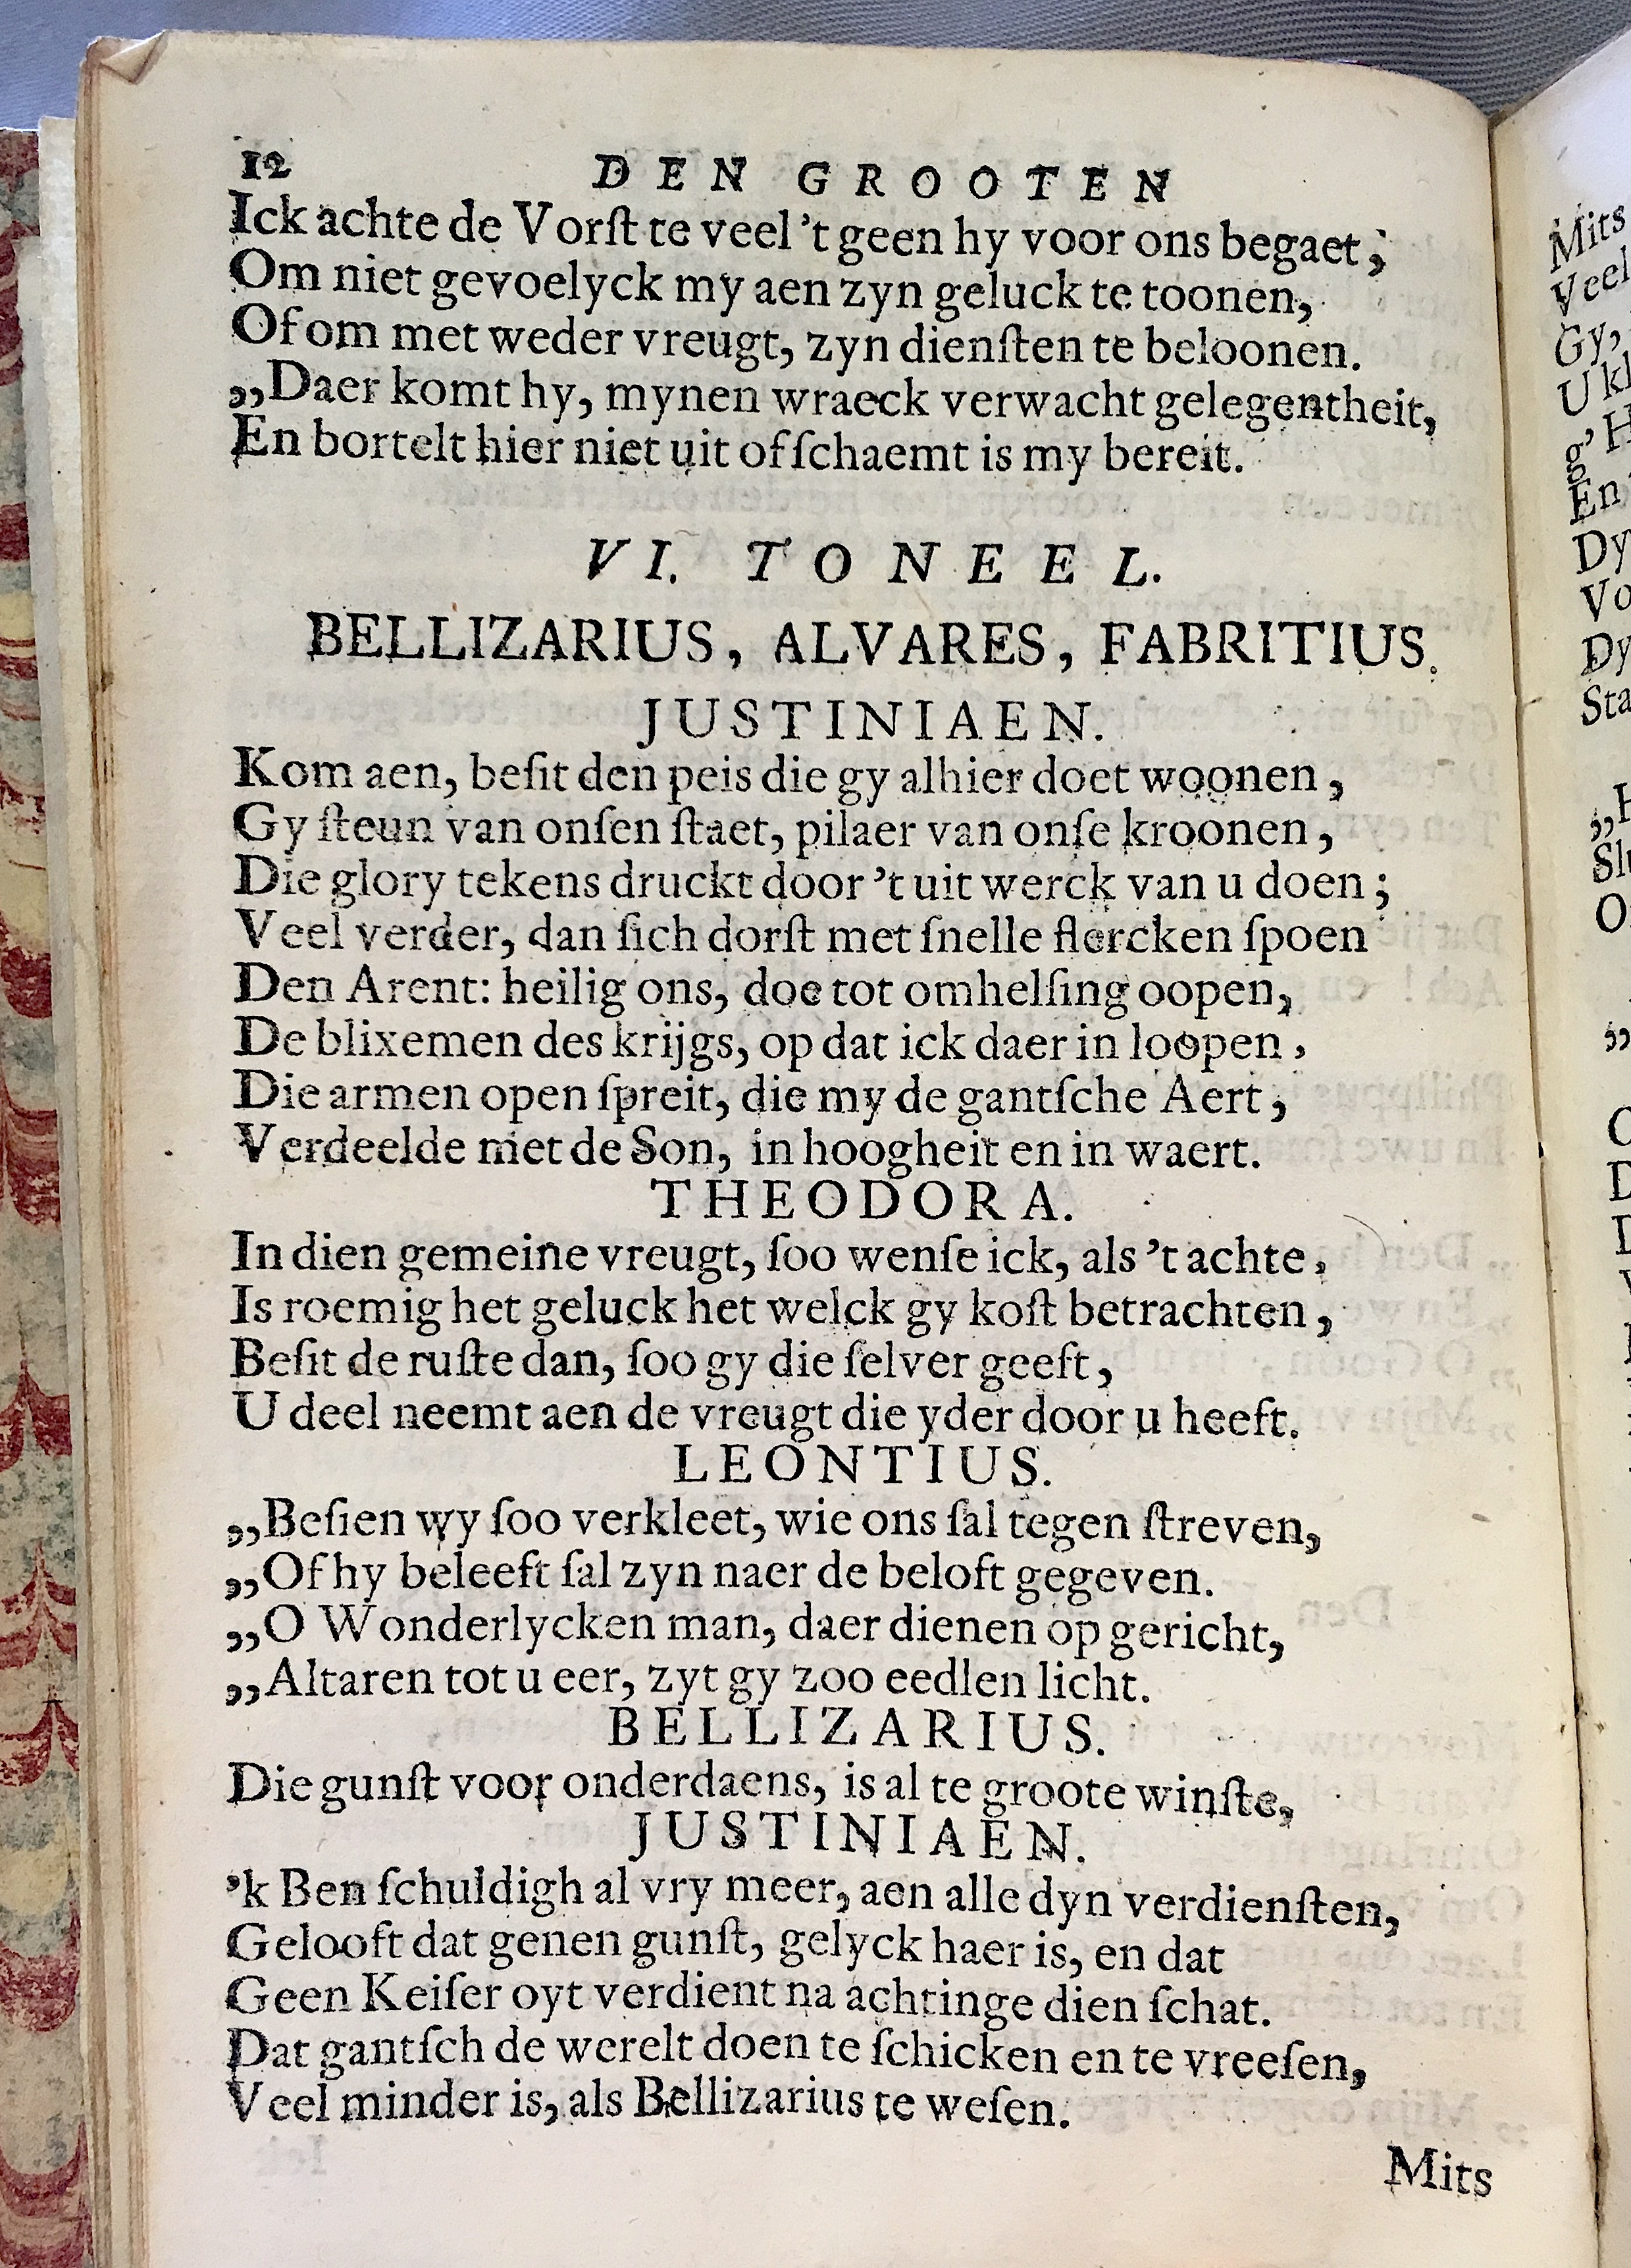 12 DEN GROOTEN
Ick achte de Vorſt te veel 't geen hy voor ons begaet,
Om niet gevoelyck my aen zyn geluck te toonen,
Of om met weder vreugt, zyn dienſten te beloonen.
„Daer komt hy, mynen wraeck verwacht gelegentheit,
En bortelt hier niet uit of ſchaemt is my bereit.
VI. TONEEL.
BELLIZARIUS, ALVARES, FABRITIUS.
JUSTINIAEN.
Kom aen, beſit den peis die gy alhier doet woonen,
Gy ſteun van onſen ſtaet, pilaer van onſe kroonen,
Die glory tekens druckt door 't uit werck van u doen;
Veel verder, dan ſich dorſt met ſnelle flercken ſpoen
Den Arent: heilig ons, doe tot omhelſing oopen,
De blixemen des krijgs, op dat ick daer in loopen,
Die armen open ſpreit, die my de gantſche Aert,
Verdeelde met de Son, in hoogheit en in waert.
THEODORA.
In dien gemeine vreugt, ſoo wenſe ick, als 't achte,
Is roemig het geluck het welck gy koſt betrachten,
Beſit de ruſte dan, ſoo gy die ſelver geeft,
U deel neemt aen de vreugt die yder door u heeft.
LEONTIUS.
„Beſien wy ſoo verkleet, wie ons ſal tegen ſtreven,
„Of hy beleeft ſal zyn naer de beloft gegeven.
„O Wonderlycken man, daer dienen op gericht,
„Altaren tot u eer, zyt gy zoo eedlen licht.
BELLIZARIUS.
Die gunſt voor onderdaens, is al te groote winſte,
JUSTINIAEN.
'k Ben ſchuldigh al vry meer, aen alle dyn verdienſten,
Gelooft dat genen gunſt, gelyck haer is, en dat
Geen Keiſer oyt verdient na achtinge dien ſchat.
Dat gantſch de werelt doen te ſchicken en te vreeſen,
Veel minder is, als Bellizarius te weſen.
Mits
Mits
Veel
Gy,
U kl
g' H
En
Dy
Vo
Dy
Sta